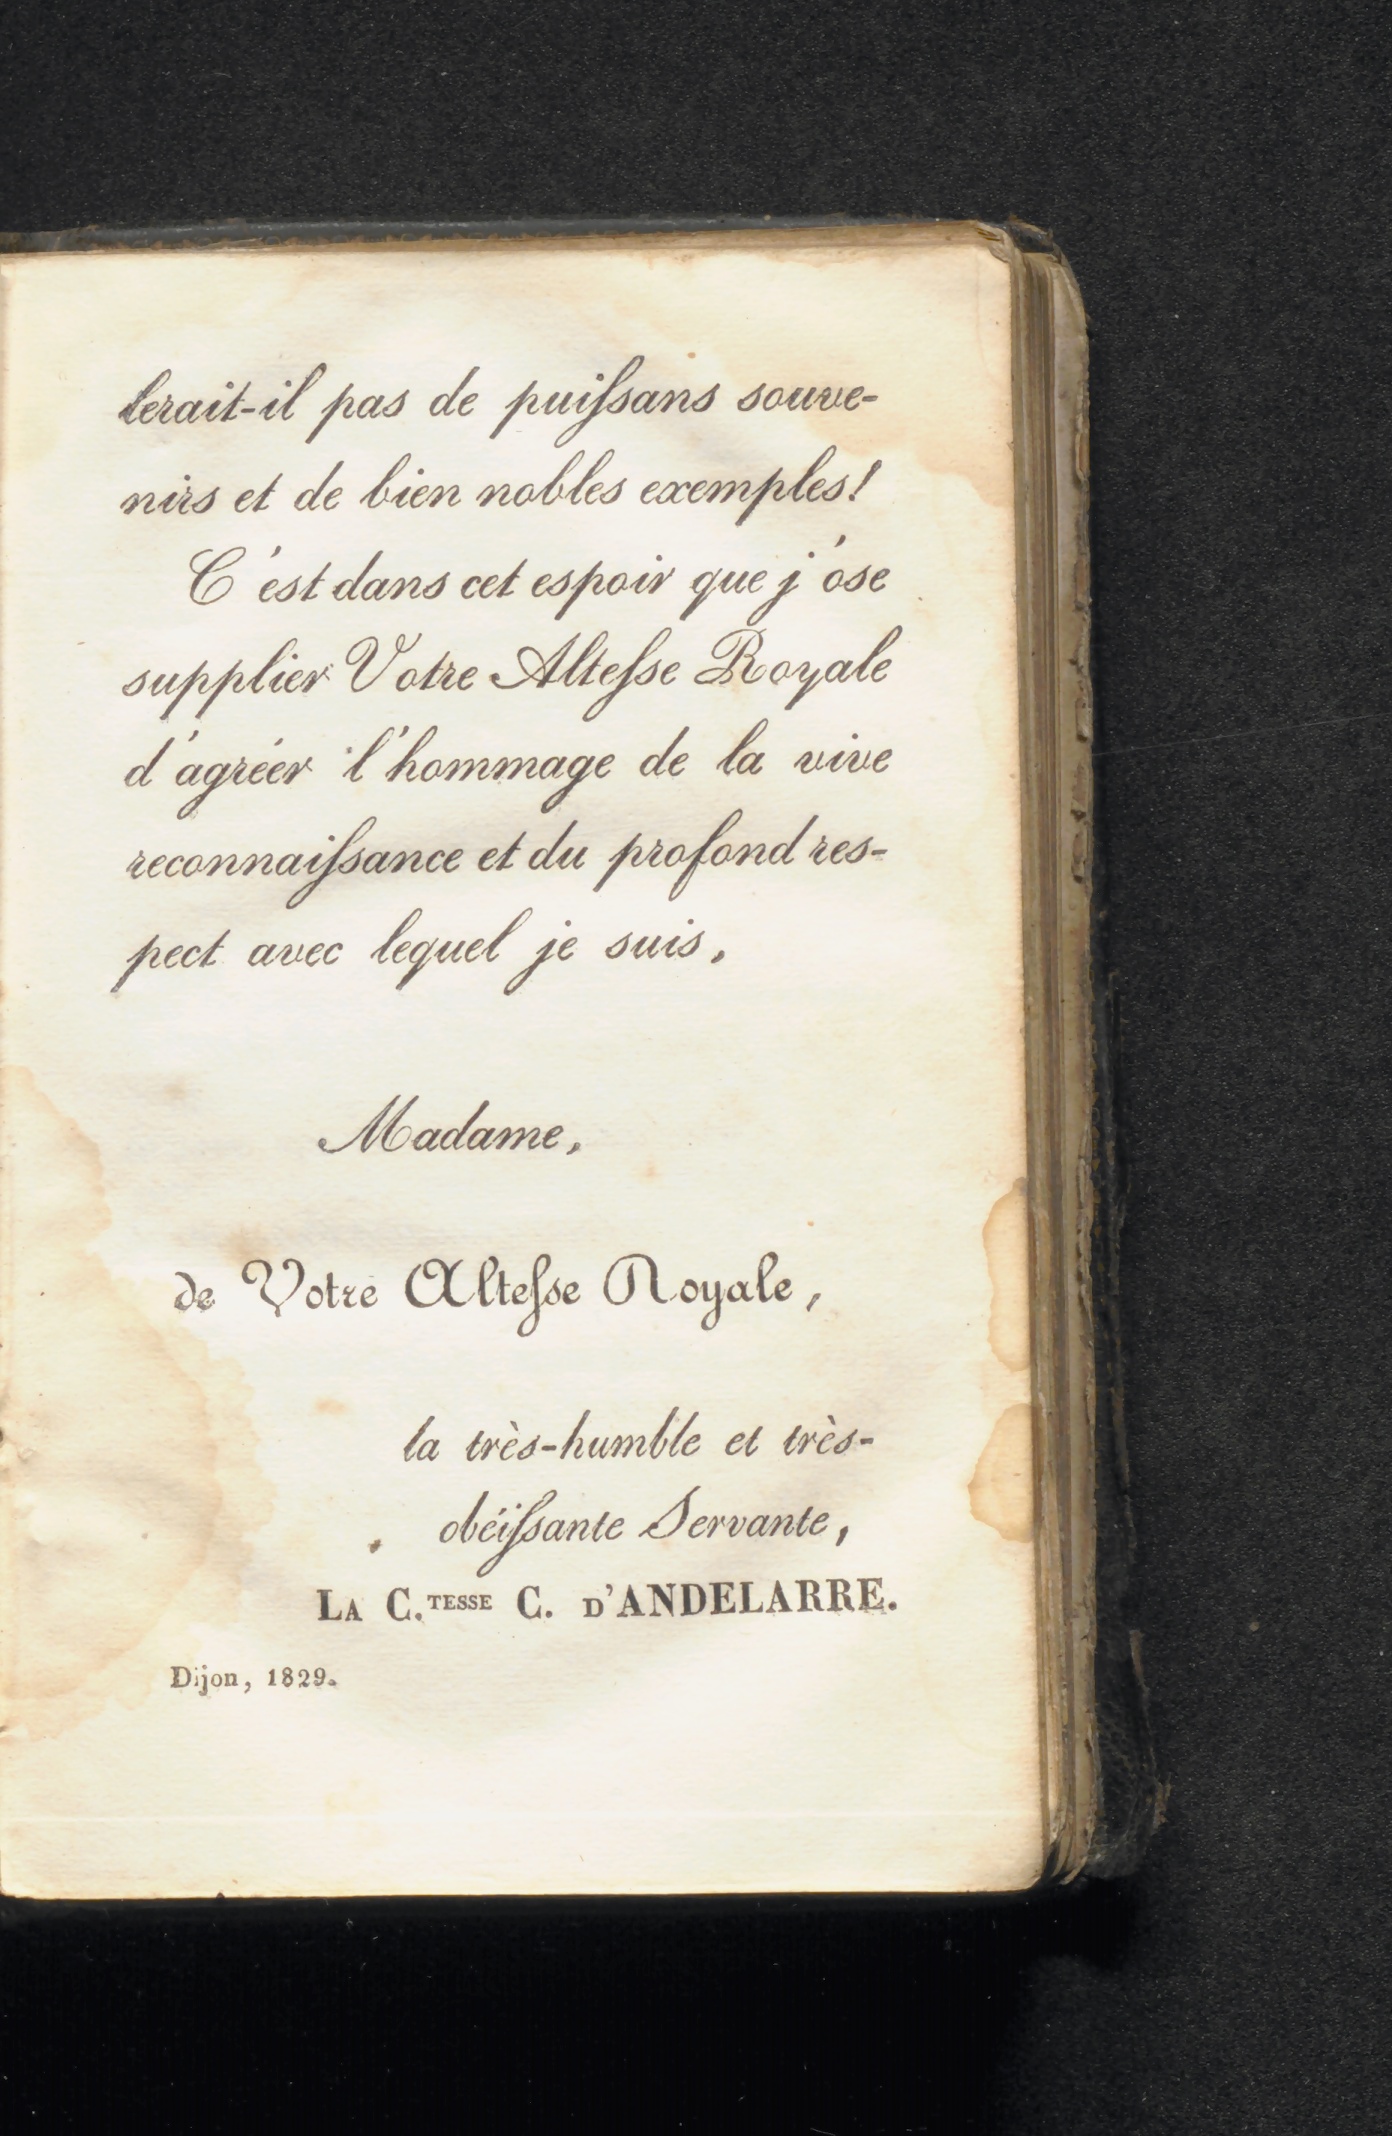 lerait-il pas de puiſsans souve-
nirs et de bien nobles exemples!
C'est dans cet espoir que j'ose
supplier Votre Alteſse Royale
d'agréer l'hommage de la vive
reconnaiſsance et du profond res-
pect avec lequel je suis,
Madame,
de Votre Alteſse Royale,
la très-humble et très-
obéiſsante Servante,
LA C.TESSE C. D'ANDELARRE.
Dijon, 1829.